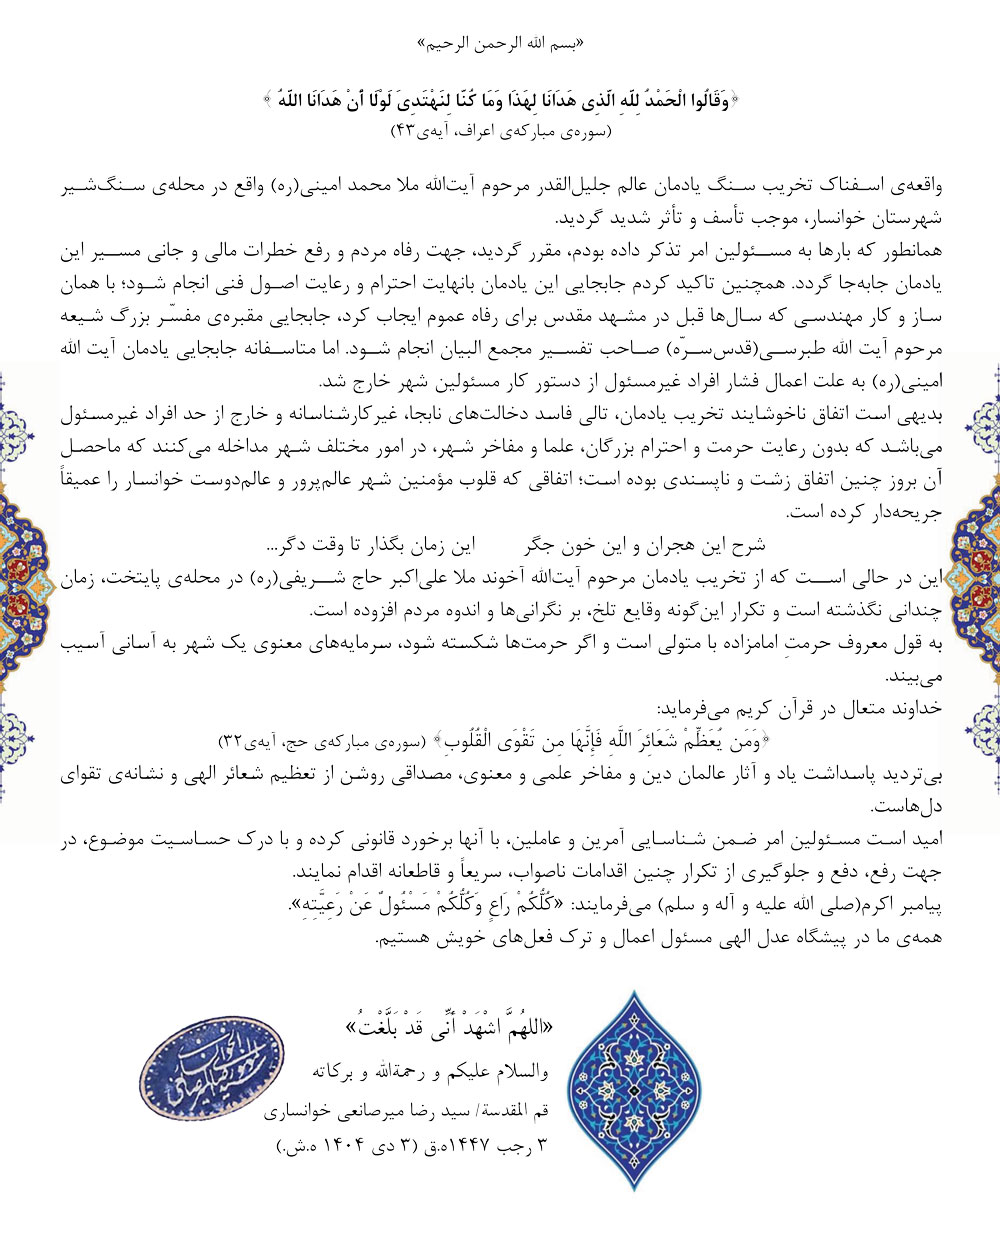 «بسم الله الرحمن الرحیم»
﴿وَقَالُوا الْحَمْدُ لِلَّهِ الَّذِی هَدَانَا لِهَذَا وَمَا كُنَّا لِنَهْتَدِیَ لَوْلَا أَنْ هَدَانَا اللَّهُ ﴾
(سوره‌ی مبارکه‌ی اعراف، آیه‌ی۴۳)
واقعه‌ی اسفناک تخریب سنگ یادمان عالم جلیل‌القدر مرحوم آیت‌الله ملا محمد امینی(ره) واقع در محله‌ی سنگ‌شیر
شهرستان خوانسار، موجب تأسف و تأثر شدید گردید.
همانطور که بارها به مسئولین امر تذکر داده بودم، مقرر گردید، جهت رفاه مردم و رفع خطرات مالی و جانی مسیر این
یادمان جابه‌جا گردد. همچنین تاکید کردم جابجایی این یادمان بانهایت احترام و رعایت اصول فنی انجام شود؛ با همان
ساز و کار مهندسی که سال‌ها قبل در مشهد مقدس برای رفاه عموم ایجاب کرد، جابجایی مقبره‌ی مفسّر بزرگ شیعه
مرحوم آیت الله طبرسی(قدس‌سرّه) صاحب تفسیر مجمع البیان انجام شود. اما متاسفانه جابجایی یادمان آیت الله
امینی(ره) به علت اعمال فشار افراد غیرمسئول از دستور کار مسئولین شهر خارج شد.
بدیهی است اتفاق ناخوشایند تخریب یادمان، تالی فاسد دخالت‌های نابجا، غیرکارشناسانه و خارج از حد افراد غیرمسئول
می‌باشد که بدون رعایت حرمت و احترام بزرگان، علما و مفاخر شهر، در امور مختلف شهر مداخله می‌کنند که ماحصل
آن بروز چنین اتفاق زشت و ناپسندی بوده است؛ اتفاقی که قلوب مؤمنین شهر عالم‌پرور و عالم‌دوست خوانسار را عمیقاً
جریحه‌دار کرده است.
شرح این هجران و این خون جگر این زمان بگذار تا وقت دگر...
این در حالی است که از تخریب یادمان مرحوم آیت‌الله آخوند ملا علی‌اکبر حاج شریفی(ره) در محله‌ی پایتخت، زمان
چندانی نگذشته است و تکرار این‌گونه وقایع تلخ، بر نگرانی‌ها و اندوه مردم افزوده است.
به قول معروف حرمتِ امامزاده با متولی است و اگر حرمت‌ها شکسته شود، سرمایه‌های معنوی یک شهر به آسانی آسیب
می‌بیند.
خداوند متعال در قرآن کریم می‌فرماید:
﴿وَمَن یُعَظِّمْ شَعَائِرَ اللَّهِ فَإِنَّهَا مِن تَقْوَى الْقُلُوبِ﴾ (سوره‌ی مبارکه‌ی حج، آیه‌ی۳۲)
بی‌تردید پاسداشت یاد و آثار عالمان دین و مفاخر علمی و معنوی، مصداقی روشن از تعظیم شعائر الهی و نشانه‌ی تقوای
دل‌هاست.
امید است مسئولین امر ضمن شناسایی آمرین و عاملین، با آنها برخورد قانونی کرده و با درک حساسیت موضوع، در
جهت رفع، دفع و جلوگیری از تکرار چنین اقدامات ناصواب، سریعاً و قاطعانه اقدام نمایند.
پیامبر اکرم(صلی الله علیه و آله و سلم) می‌فرمایند: «كُلُّكُمْ رَاعٍ وَكُلُّكُمْ مَسْئُولٌ عَنْ رَعِیَّتِهِ».
همه‌ی ما در پیشگاه عدل الهی مسئول اعمال و ترک فعل‌های خویش هستیم.
«اللهُمَّ اشْهَدْ أَنِّی قَدْ بَلَّغْتُ»
والسلام علیکم و رحمةالله و برکاته
قم المقدسة/ سید رضا میرصانعی خوانساری
۳ رجب ۱۴۴۷ه.ق (۳ دی ۱۴۰۴ ه.ش.)